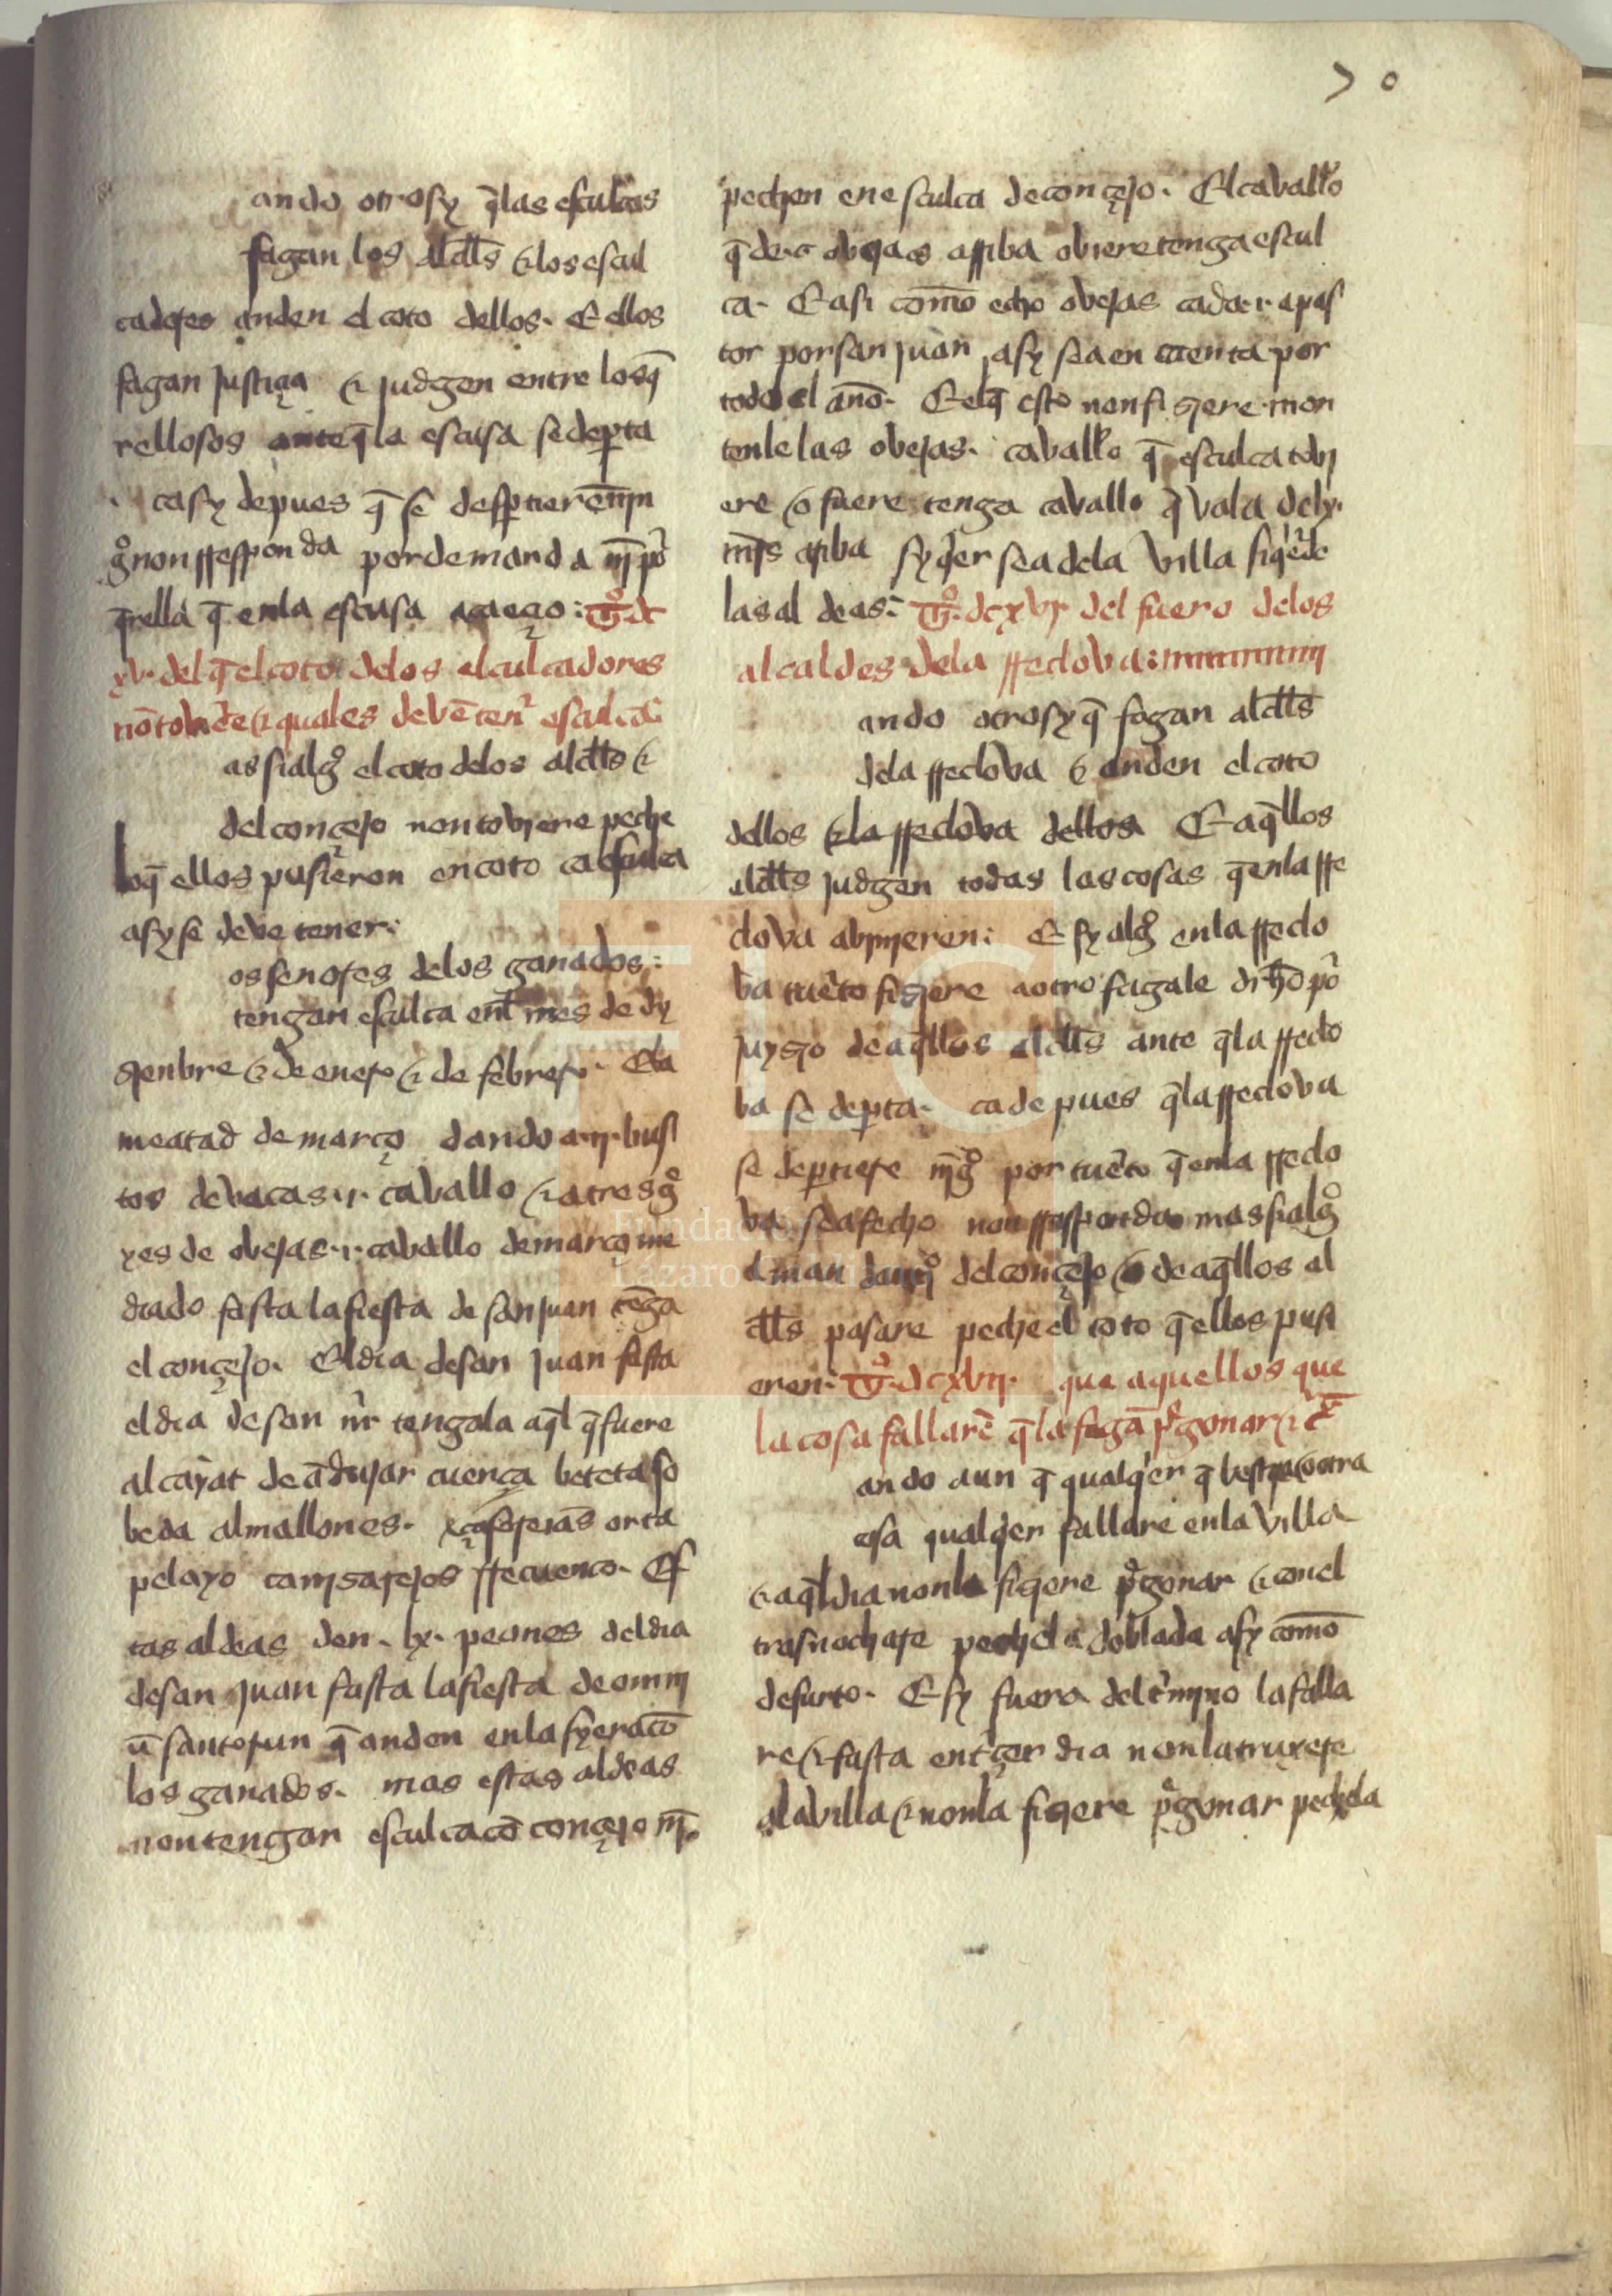 70
ando otrosy q̄las esculcas
fagan los alcłłs ⁊ los escul
cadores anden el coto dellos. E ellos
fagan justiçia ⁊ judgen entre losq̄
rellosos anteq̄la escusa se dep̱ta
casy depues q̄ se desp̱tieren nin
gº non rresponda por demanda nj̄ por
q̄rella q̄ enla escusa acaeçio: Tº. dc
xv. del q̄ el coto delos esculcadores
nō tovie͂re ⁊ quales deven̄ ten̉ esculca:
as si algº el coto delos alcłłs ⁊
del conçejo non tovjere peche
loq̄ ellos pusieron en coto ca esculca
asy se deve tener:
os senores delos ganados:
tengan esculca enł mes de dy
zienbre ⁊ de enero ⁊ de febrero. E la
meatad de março dando a .ij. bus
tos de vacas .i. cavallo ⁊ a tres gº
yes de ovejas .i. cavallo de março me
diado fasta la fiesta de san juan tēga
el conçejo. El dia de san juan fasta
el dia de san mr̄ tengala aq̄l q̄ fuere
alcayat de ādujar cuenca beteta
beda almallones. orta
pelayo cañisarejos rrecuenco. Es
tas aldeas den .lx. peones del dia
de san juan fasta la fiesta de omni
ū santorun q̄ anden enla syera cō
los ganados. mas estas aldeas
non tengan esculca cō conçejo nj̄
pechen en esculca de conçejo. El cavallo
q̄ de .c. ovejas arriba oviere tenga escul
ca. E asi commo echo ovejas cada .i. a pas
tor por san juan asy sea en cuenta por
todo el ano. E elq̄ esto non fiziere mon
tenle las ovejas. cavallo q̄ esculca tovj
ere o fuere tenga cavallo q̄ vala de lx.
mr̄s arriba syq̉er sea dela villa siq̉er de
las aldeas: Tº. dcxvj del fuero delos
alcaldes dela rrecłova:
ando otrosy q̄ fagan alcłłs
dela rrecłova ⁊ anden el coto
dellos ⁊ la rrecłova dellos E aq̄llos
alcłłs judgen todas las cosas q̄ enla rre
cłova abinieren: E sy algº enla rreclo
ba tuerto fiziere a otro fagale dr̄cho por
juyzio de aq̄llos alcłłs ante q̄la rreclo
ba se dep̱ta. ca depues q̄la rreclova
se dep̱tiere njgº por tuerto q̄ enla rreclo
va sea fecho non rresponda mas si algº
el mandamjº del conçejo o de aq̄llos al
cłłs pasare peche el coto q̄ ellos pusi
eren. Tº. dcxvij. que aquellos que
la cosa fallarē q̄ la fagā p̉gonar ⁊ c̄
ando aun q̄ qualq̉er q̄ bestia o otra
cosa qualq̉er fallare enla villa
⁊ aq̄l dia nonla fiziere p̉gonar ⁊ conel
trasnochare pechela doblada asy commo
de furto. E sy fuera del t̉mjno la falla
re ⁊ fasta en t̉çer dia nonla truxere
ala villa ⁊ nonla fiziere p̉gonar pechela